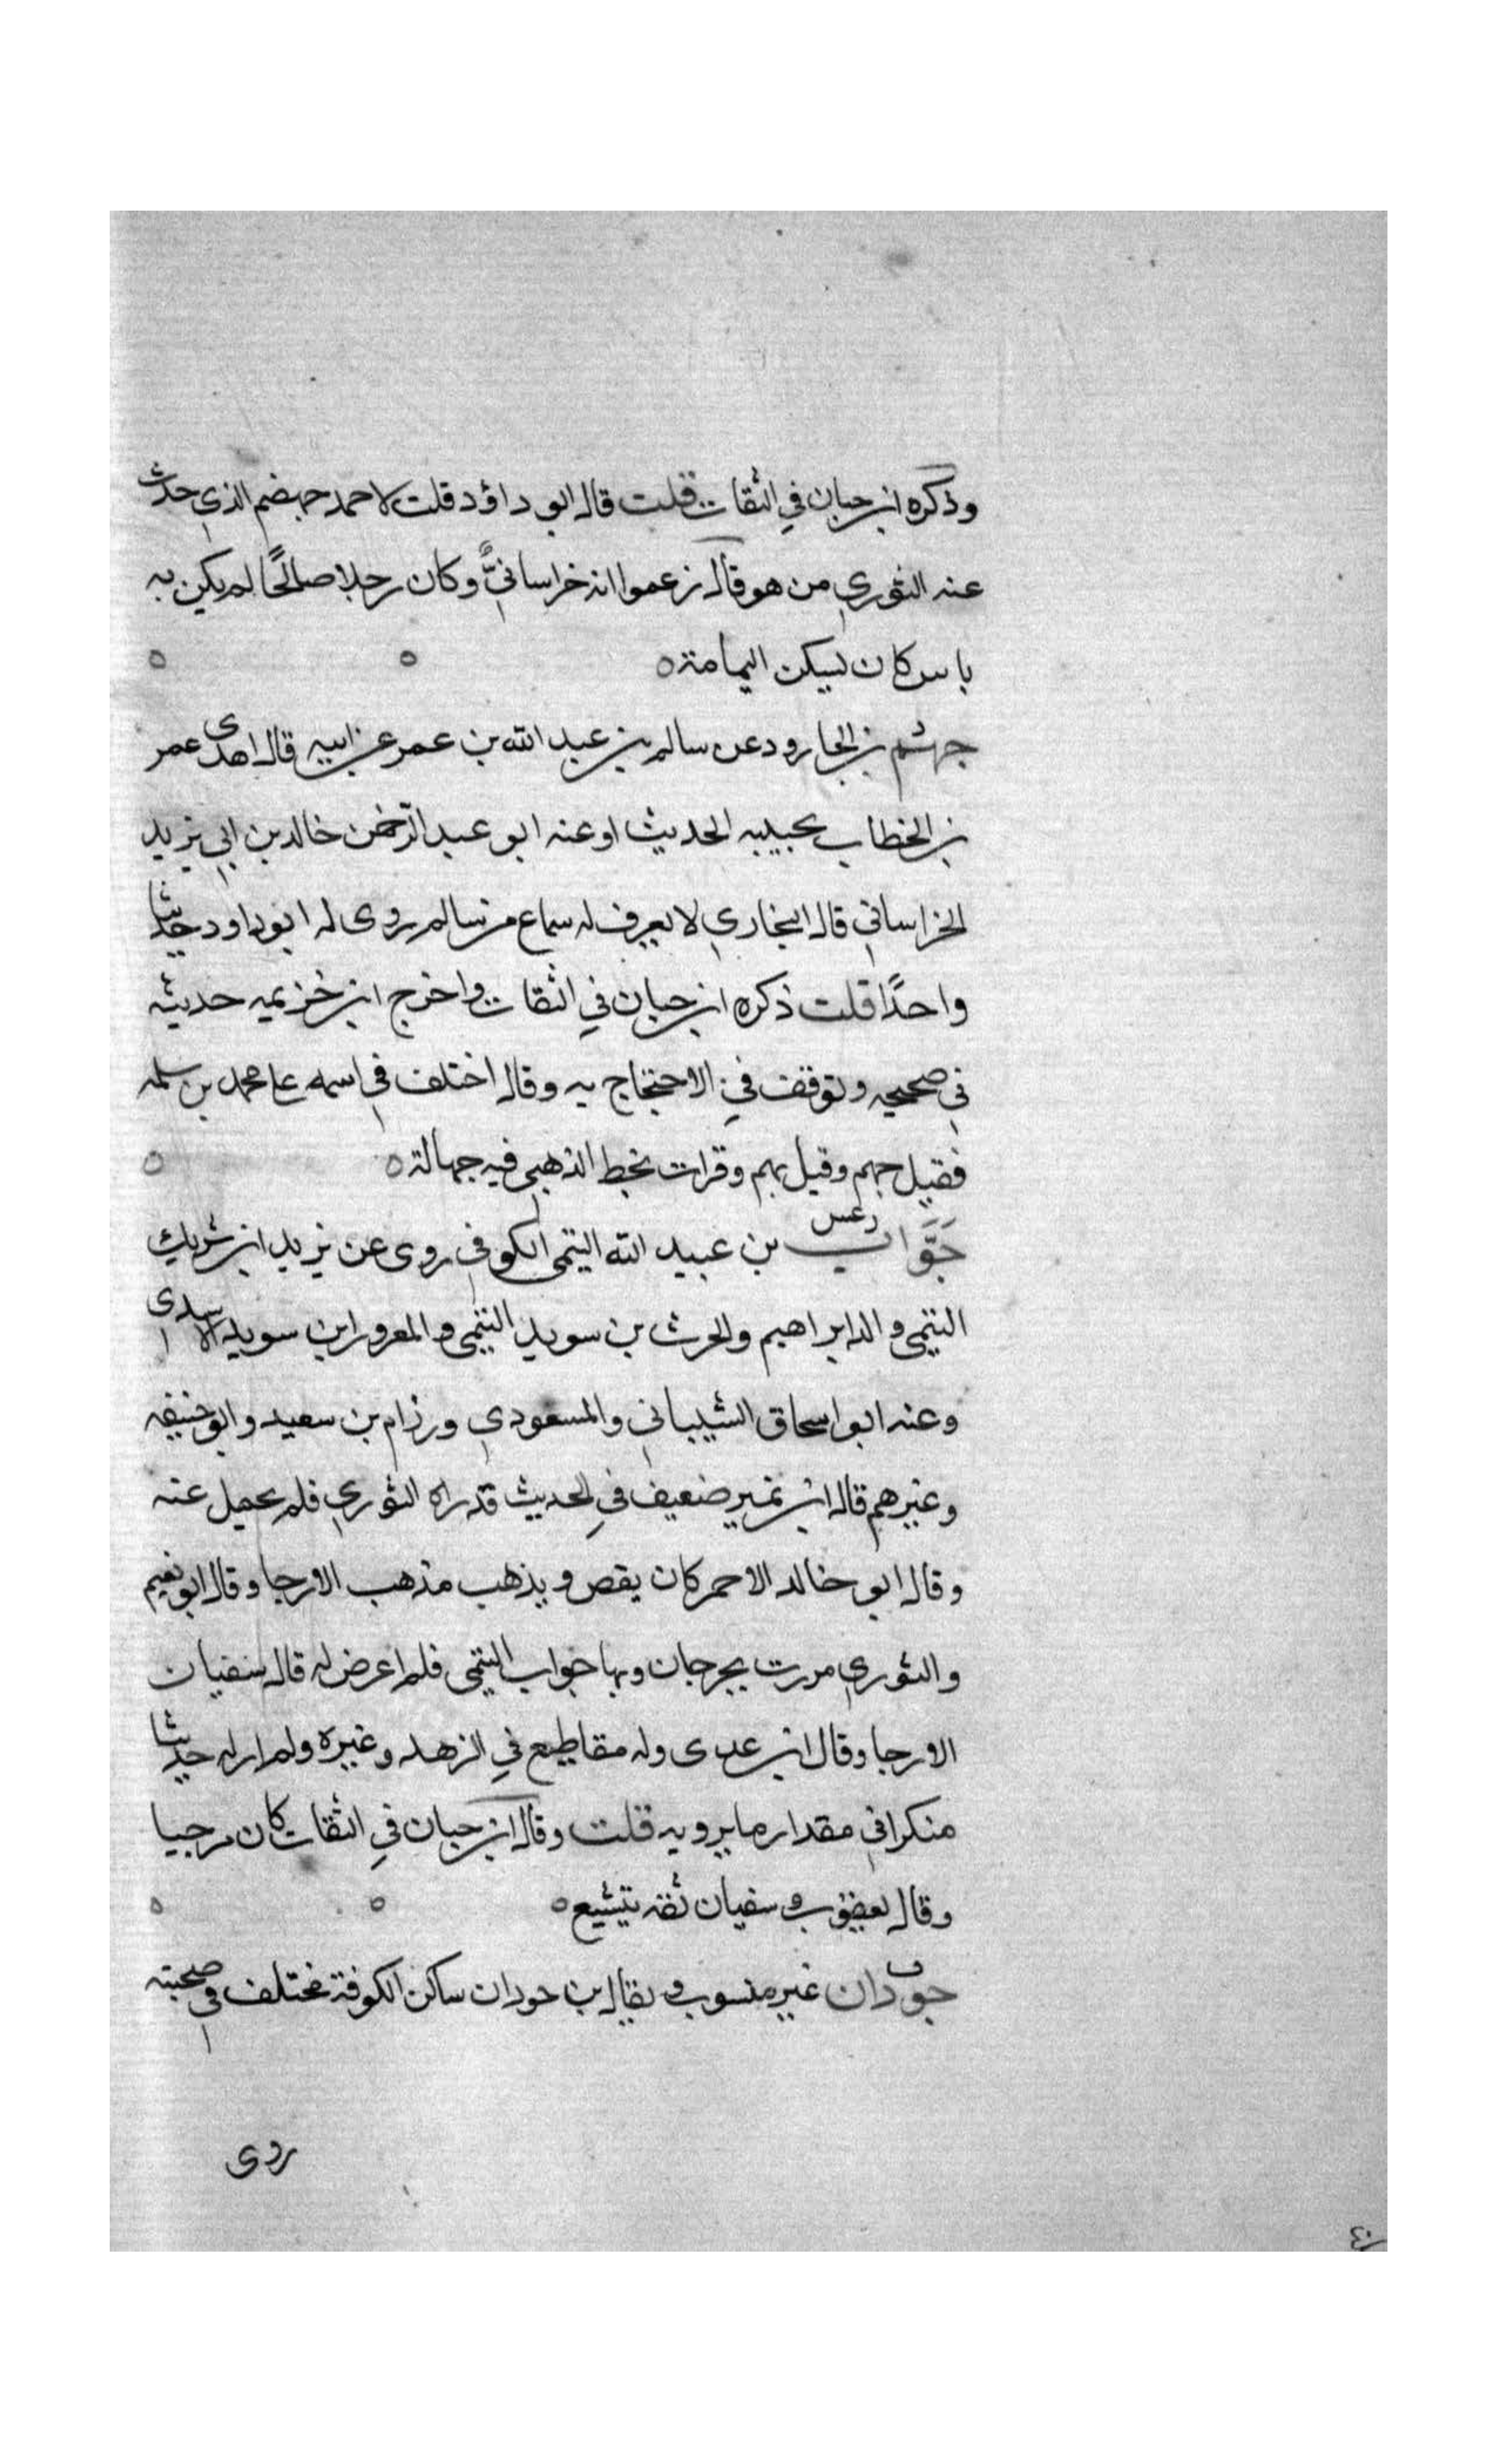 وذكره ابن حبان في الثقات قلت قال ابو داؤد قلت لاحمد جهضم الذي حدث
عنه الثوري من هو قال زعموا انه خراسانيٌّ وكان رجلا صالحًا لم يكن به
باس كان يسكن اليمامة ه ه ه
جهشم بن الجارود عن سالم بن عبد الله بن عمر عن ابيه قال اهدى عمر
بن الخطاب بحبيبه الحديث او عنه ابو عبد الرّحمن خالد بن ابي يزيد
الخراساني قال البخاري لا يعرف له سماع من سالم روى له ابو داود حديثا
واحدًا قلت ذكره ابن حبان في الثقات واخرج ابن خزيمه حديثه
في صحيحه وتوقف في الاحتجاج به وقال اختلف في اسمه على محمد بن سلمه
فقيل جهم وقيل بهم وقرات بخط الذهبي فيه جهالة ه ه
جَوَّاب رعس بن عبيد الله التيمي الكوفي روى عن يزيد ابن شريك
التيمي والد ابراهيم والحرث بن سويد التيمي والمعرور ابن سويد الاسدى
وعنه ابو اسحاق الشيباني والمسعودي ورزام بن سعيد وابو حنيفه
وغيرهم قال ابن نمير ضعيف في الحديث قد راه الثوري فلم يحمل عنه
وقال ابو خالد الاحمر كان يقص ويذهب مذهب الارجا وقال ابو نعيم
والثوري مررت بجرجان وبها جواب التيمي فلم اعرض له قال سفيان
الارجا وقال ابن عدى وله مقاطيع في الزهد وغيره ولم ار له حديثا
منكرا في مقدار ما يرويه قلت وقال ابن حبان في الثقات كان مرجيا
وقال يعقوب و سفيان ثقه يتشيع ه ه ه
ق جودان غير منسوب ويقال بن جودان ساكن الكوفة مختلف في صحبته
روى